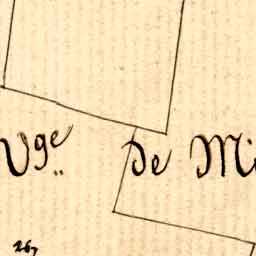 Vge. de Mi
267